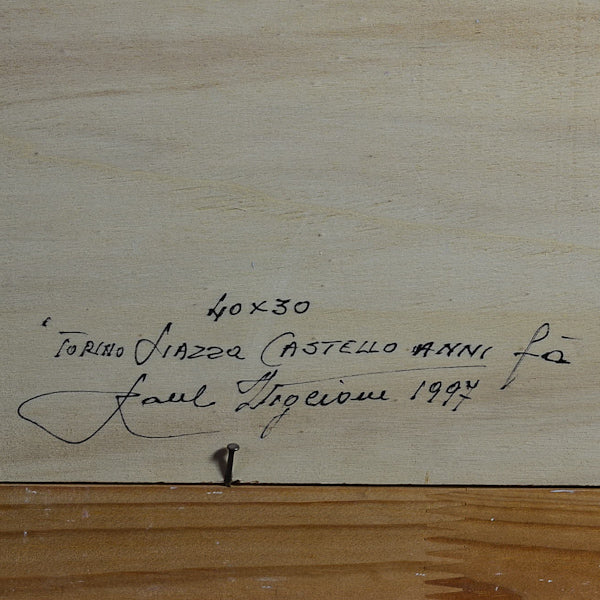 40x30
'TORINO PIAZZA CASTELLO ANNI fà
Raul Viglione 1997